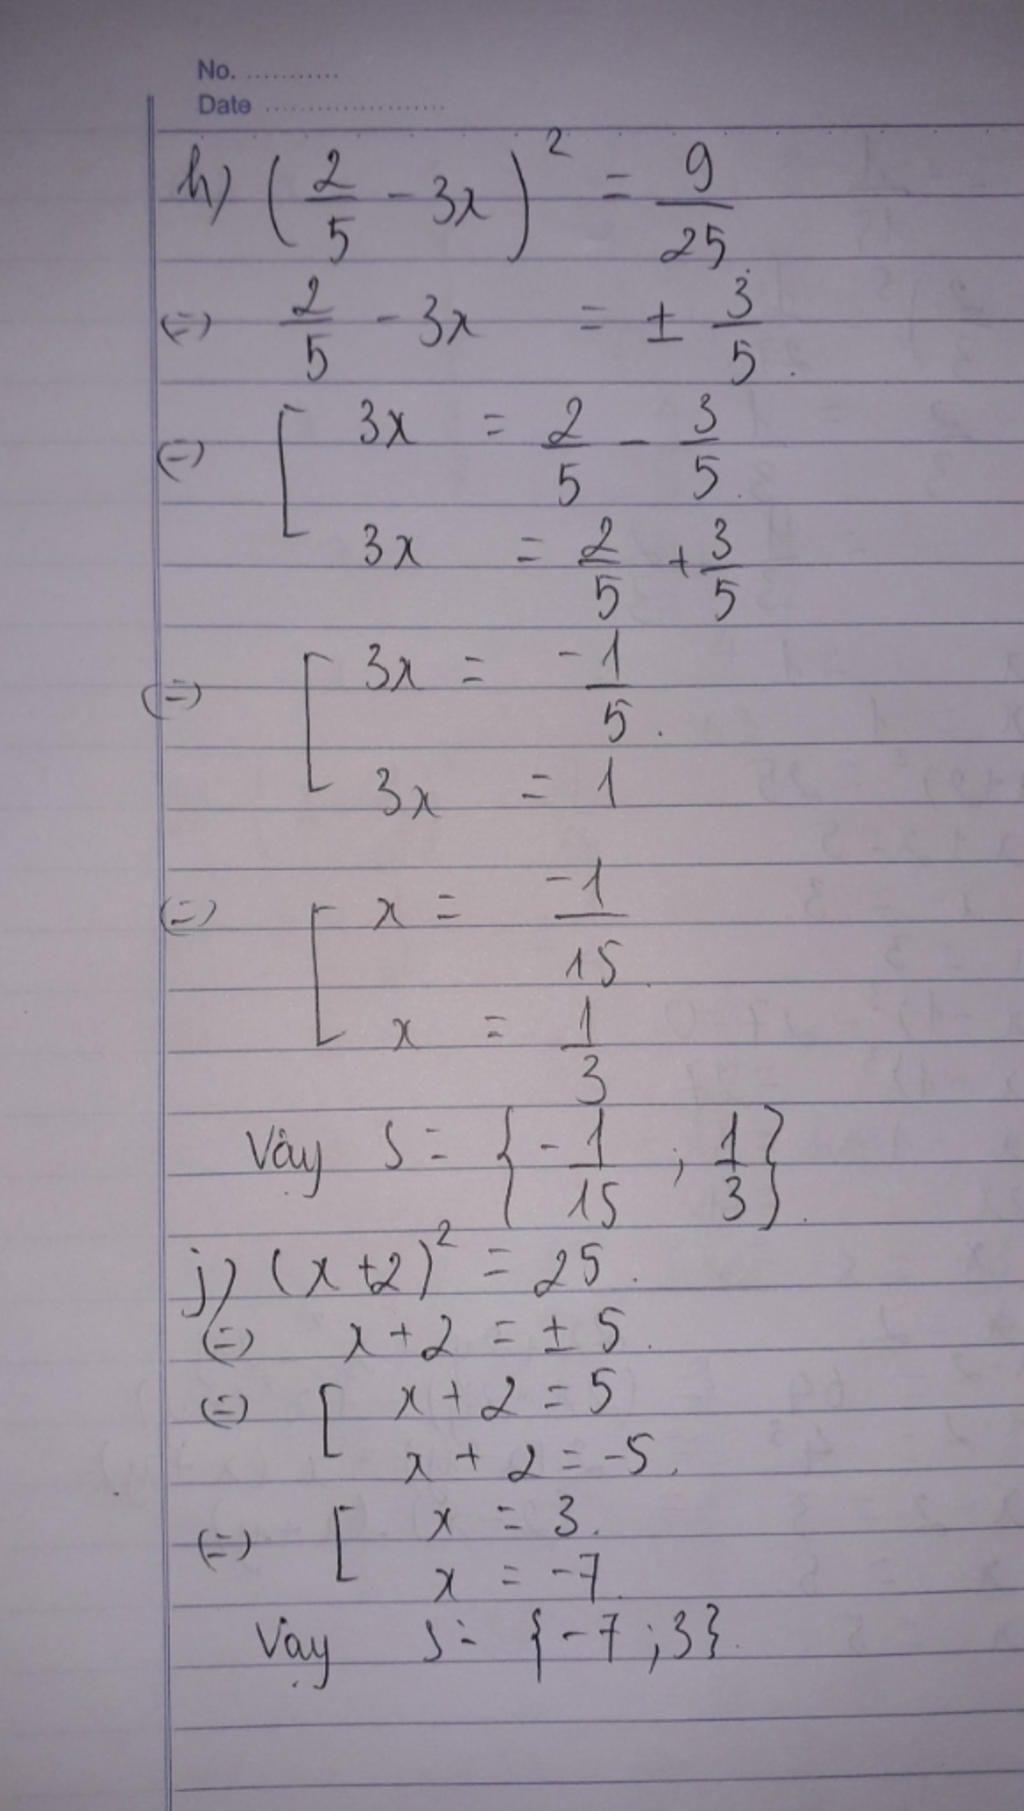 No. ...........
Date .....................
h) (2/5 - 3x)² = 9/25
(=) 2/5 - 3x = ± 3/5.
(=) [ 3x = 2/5 - 3/5.
3x = 2/5 + 3/5
(=) [ 3x = -1/5.
3x = 1
(=) [ x = -1/15.
x = 1/3
Vậy S = {-1/15 ; 1/3}.
j) (x+2)² = 25.
(=) x + 2 = ± 5.
(=) [ x + 2 = 5
x + 2 = -5.
(=) [ x = 3.
x = -7.
Vậy S = {-7 ; 3}.